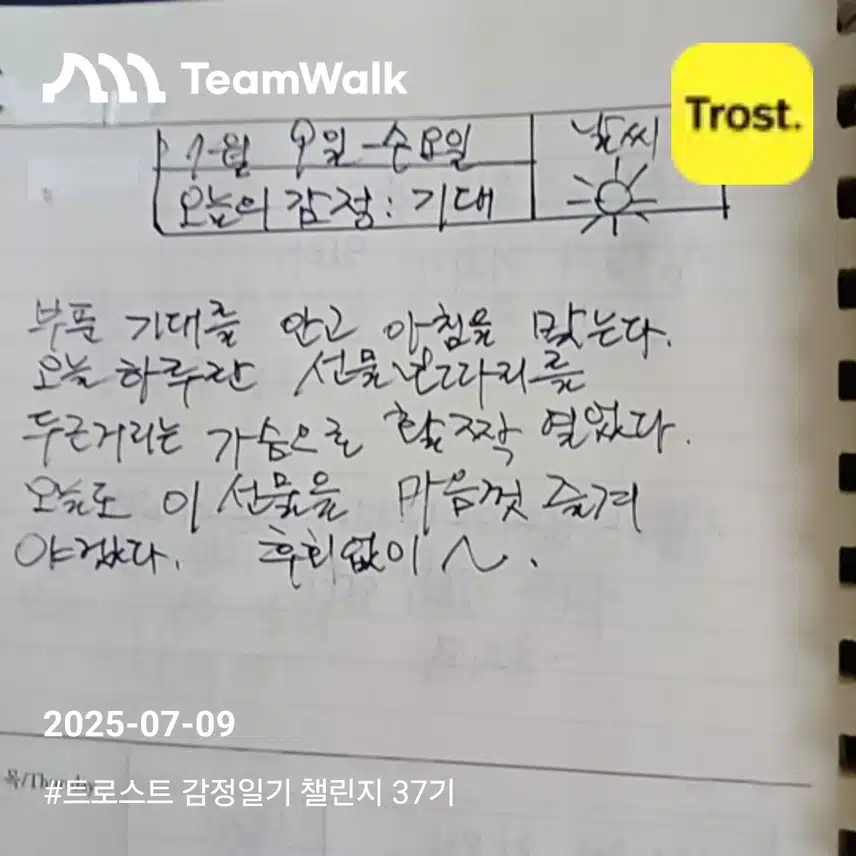 TeamWalk
Trost.
7월 9일 수요일
날씨
오늘의 감정: 기대
부푼 기대를 안고 아침을 맞는다.
오늘 하루란 선물보따리를
두근거리는 가슴으로 활짝 열었다.
오늘도 이 선물을 마음껏 즐겨
야겠다. 후회없이 ~.
2025-07-09
목/Thursday
#트로스트 감정일기 챌린지 37기